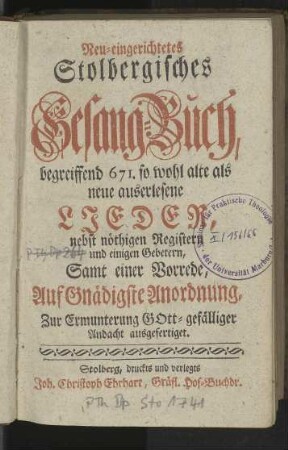 Neu-eingerichtetes
Stolbergisches
Gesang Buch,
begreiffend 671. so wohl alte als
neue auserlesene
LIEDER,
nebst nöthigen Registern
und einigen Gebetern,
Samt einer Vorrede,
Auf Gnädigste Anordnung,
Zur Ermunterung GOtt-gefälliger
Andacht ausgefertiget.
Stolberg, druckts und verlegts
Joh. Christoph Ehrhart, Gräfl. Hof-Buchdr.
für Praktische Theologie
XI/156/66
der Universität Marburg
PTh Dp Sto 1741